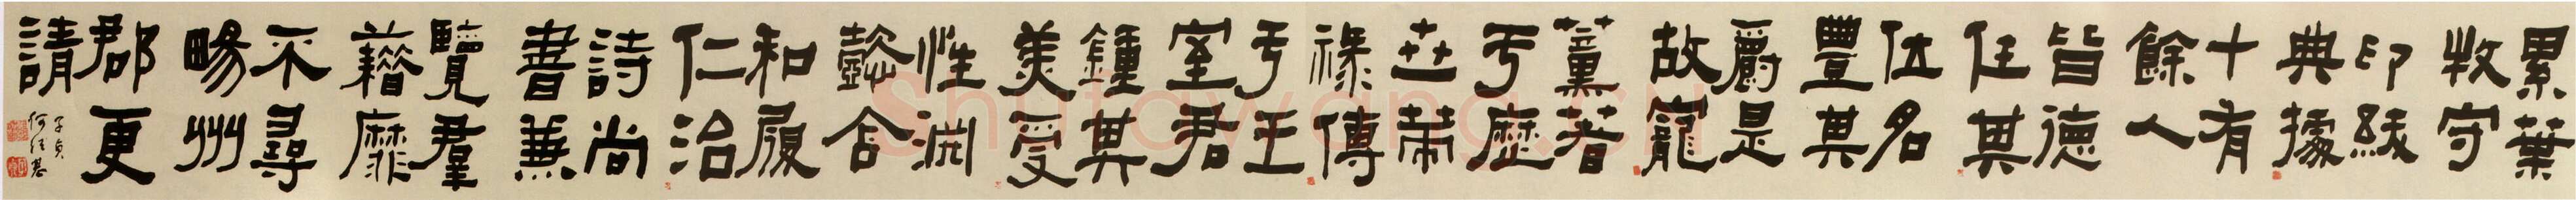 累葉
牧守
印紱
典據
十有
餘人
皆德
任其
位名
豐其
爵是
故寵
薰著
于歷
世策
祿傳
于王
室君
鍾其
美受
性淵
懿含
和履
仁治
詩尚
書兼
覽羣
藉靡
不尋
暢州
郡更
請
子貞
何紹基
Shufawang.cn